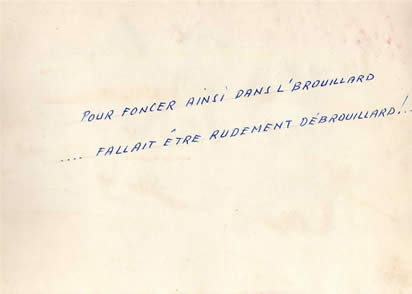 POUR FONCER AINSI DANS L'BROUILLARD
.... FALLAIT ÊTRE RUDEMENT DÉBROUILLARD!...